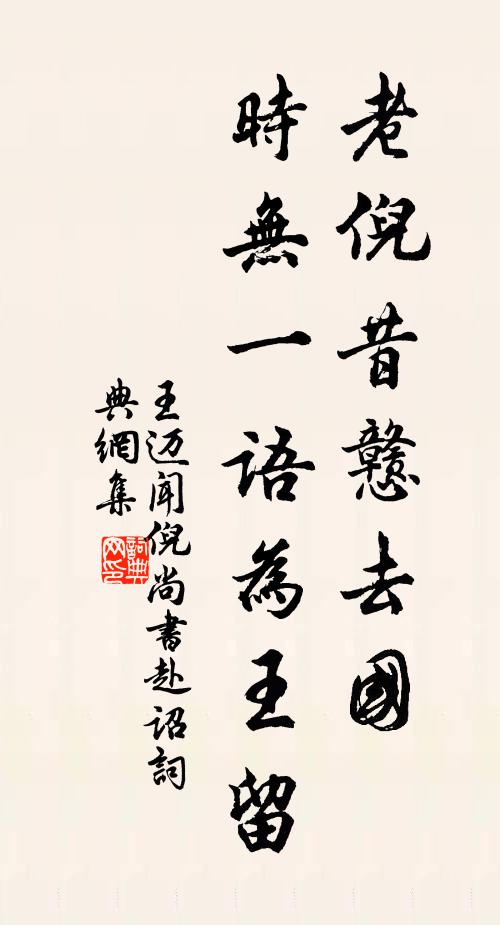 老倪昔戇去國
時無一語為王留
王迈闻倪尚書赴诏詞
典網集
詞典網印